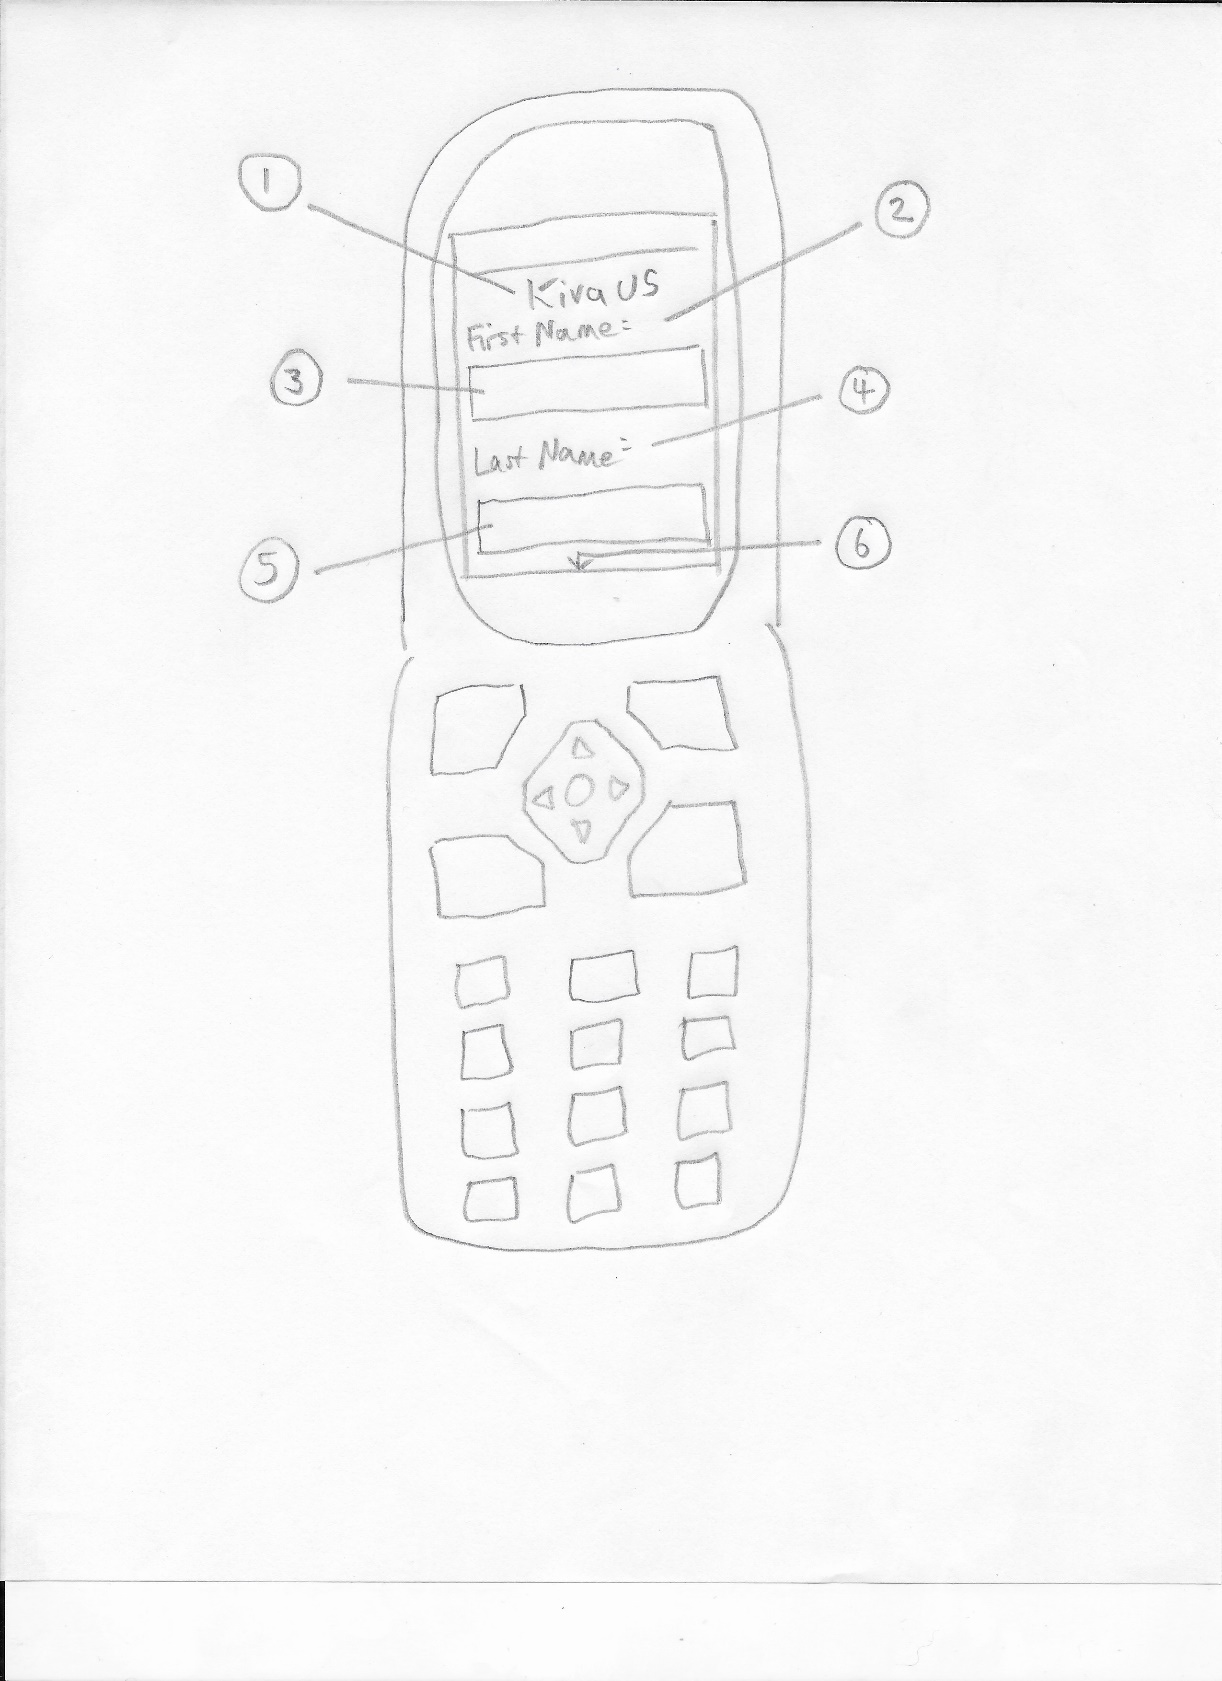 1
2
Kiva US
First Name:
3
4
Last Name:
5
6